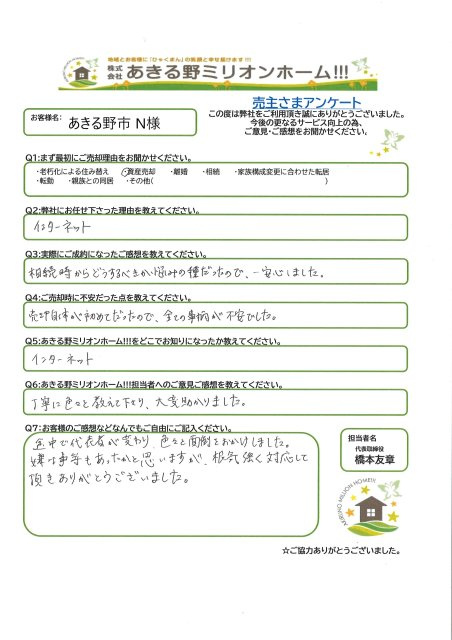 地域とお客様に「ひゃくまん」の笑顔と幸せ届けます!!!
株式会社 あきる野ミリオンホーム!!!
売主さまアンケート
お客様名: あきる野市 N様
この度は弊社をご利用頂き誠にありがとうございました。
今後の更なるサービス向上の為、
ご意見・ご感想をお聞かせください。
Q1:まず最初にご売却理由をお聞かせください。
・老朽化による住み替え ・資産売却 ・離婚 ・相続 ・家族構成変更に合わせた転居
・転勤 ・親族との同居 ・その他( )
Q2:弊社にお任せ下さった理由を教えてください。
インターネット
Q3:実際にご成約になったご感想を教えてください。
相続時からどうするべきか悩みの種だったので、一安心しました。
Q4:ご売却時に不安だった点を教えてください。
売却自体が初めてだったので、全ての事柄が不安でした。
Q5:あきる野ミリオンホーム!!!をどこでお知りになったか教えてください。
インターネット
Q6:あきる野ミリオンホーム!!!担当者へのご意見ご感想を教えてください。
丁寧に色々と教えて下さり、大変助かりました。
Q7:お客様のご感想などなんでもご自由にご記入ください。
途中で代表者が変わり、色々と面倒をおかけしました。
嫌な事等もあったかと思いますが、根気強く対応して
頂きありがとうございました。
担当者名
代表取締役
橋本友章
AKIRUNO MILLION HOME!!!
☆ご協力ありがとうございました。